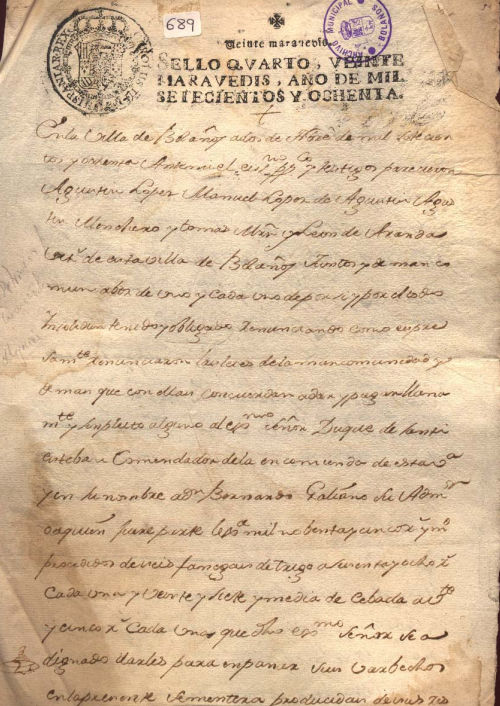 689
Veinte maravedis
SELLO QVARTO, VEINTE
MARAVEDIS, AÑO DE MIL
SETECIENTOS Y OCHENTA.
ARCHIVO MUNICIPAL BOLAÑOS
HISPANIAR. REX
En la Villa de Bolaños a dos de de mil setecien
tos y ochenta Antemi el y testigos parecieron
Agustin Lopez Manuel Lopez de Agustin Agus
tin Monchero y tomas Mrn y Leon de Aranda
de esta villa de Bolaños Juntos y de manco
mun a boz de uno y cada uno de por si y por el todo
Insolidun tenido y obligado renunciando como espre
samte renunciaron las leies de la mancomunidad y
de man que con ellas concuerdan a dar y pagar llana
mte y sin pleito alguno al exmo señor Duque de Santi
esteban Comendador de la encomienda de esta va
y en su nombre a dn Bernardo Galiano su Admor
o a quien supiere parte mil nobenta y cinco rs y mo
prozedidos de seis fanegas de trigo a sesenta y ocho rs
Cada una y Veinte y siete y media de Cebada a
y cinco rs Cada una que dho exmo Señor se a
dignado darles para enpanar sus varbechos
en la presente sementera producidas de sus